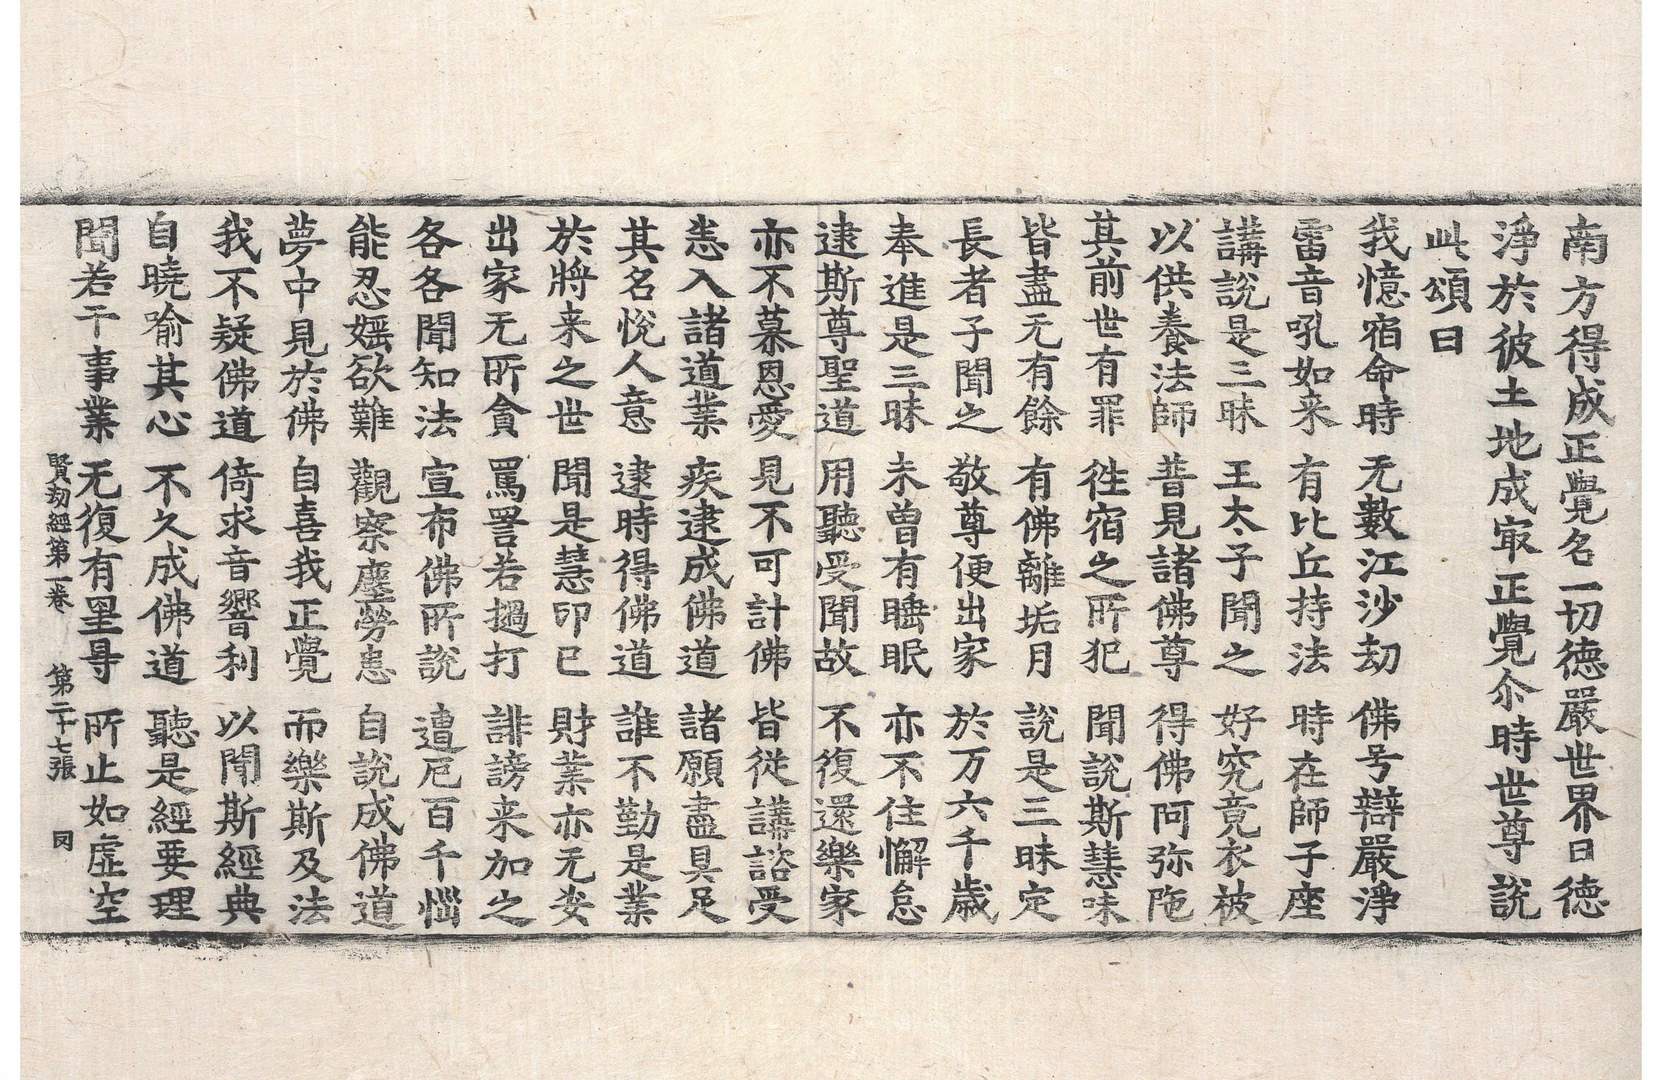 南方得成正覺名一切德嚴世界曰德
淨於彼土地成㝡正覺尒時世尊說
此頌曰
我憶宿命時 无數江沙劫 佛号辯嚴淨
雷音吼如来 有比丘持法 時在師子座
講說是三昧 王太子聞之 好究竟衣被
以供養法師 普見諸佛尊 得佛阿弥陁
其前世有罪 往宿之所犯 聞說斯慧味
皆盡无有餘 有佛離垢月 說是三昧定
長者子聞之 敬尊便出家 於万六千歲
奉進是三昧 未曾有睡眠 亦不住懈怠
逮斯尊聖道 用聽受聞故 不復還樂家
亦不慕恩愛 見不可計佛 皆從講諮受
悉入諸道業 疾逮成佛道 諸願盡具足
其名悅人意 逮時得佛道 誰不勤是業
於將来之世 聞是慧印已 財業亦无姿
出家无所貪 罵詈若撾打 誹謗来加之
各各聞知法 宣布佛所說 遭厄百千惱
能忍婬欲難 觀察塵勞恚 自說成佛道
夢中見於佛 自喜我正覺 而樂斯及法
我不疑佛道 倚求音響利 以聞斯經典
自曉喻其心 不久成佛道 聽是經要理
聞若干事業 无復有罣㝵 所止如虛空
賢劫經第一卷 第二十七張 同